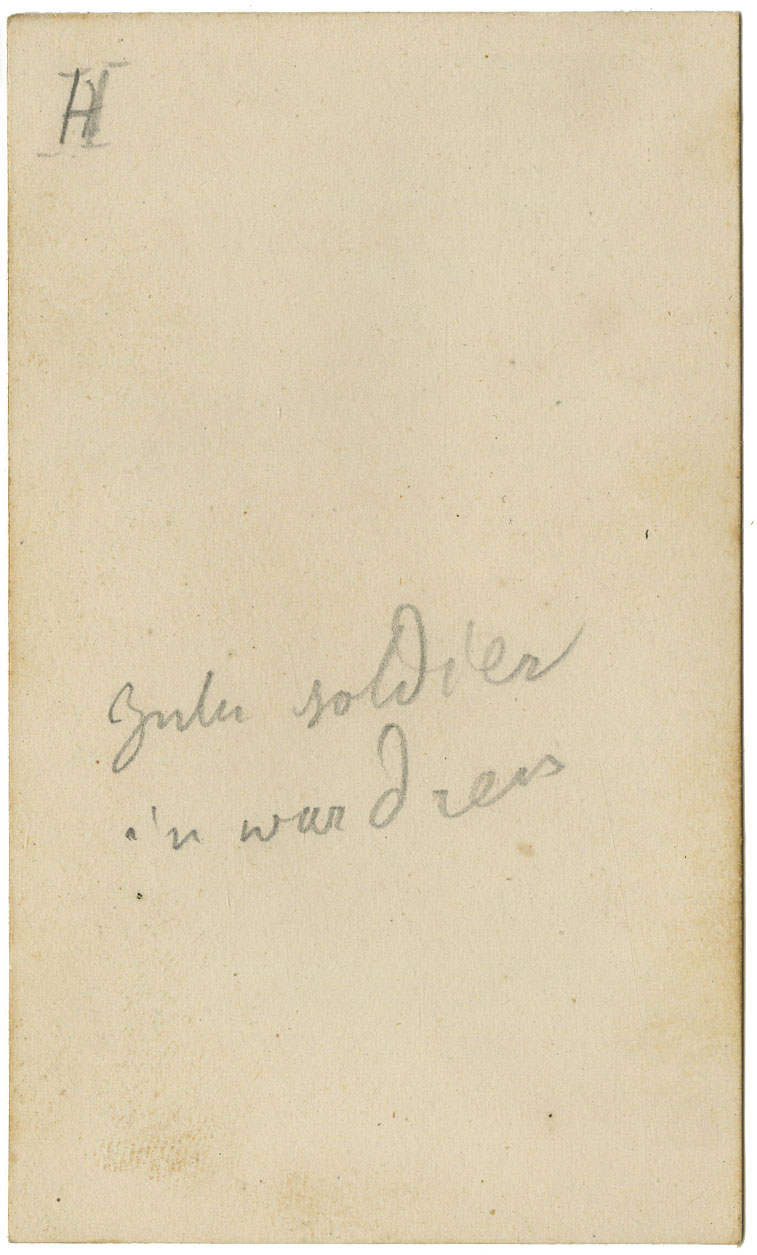 H
Zulu soldier
in war dress